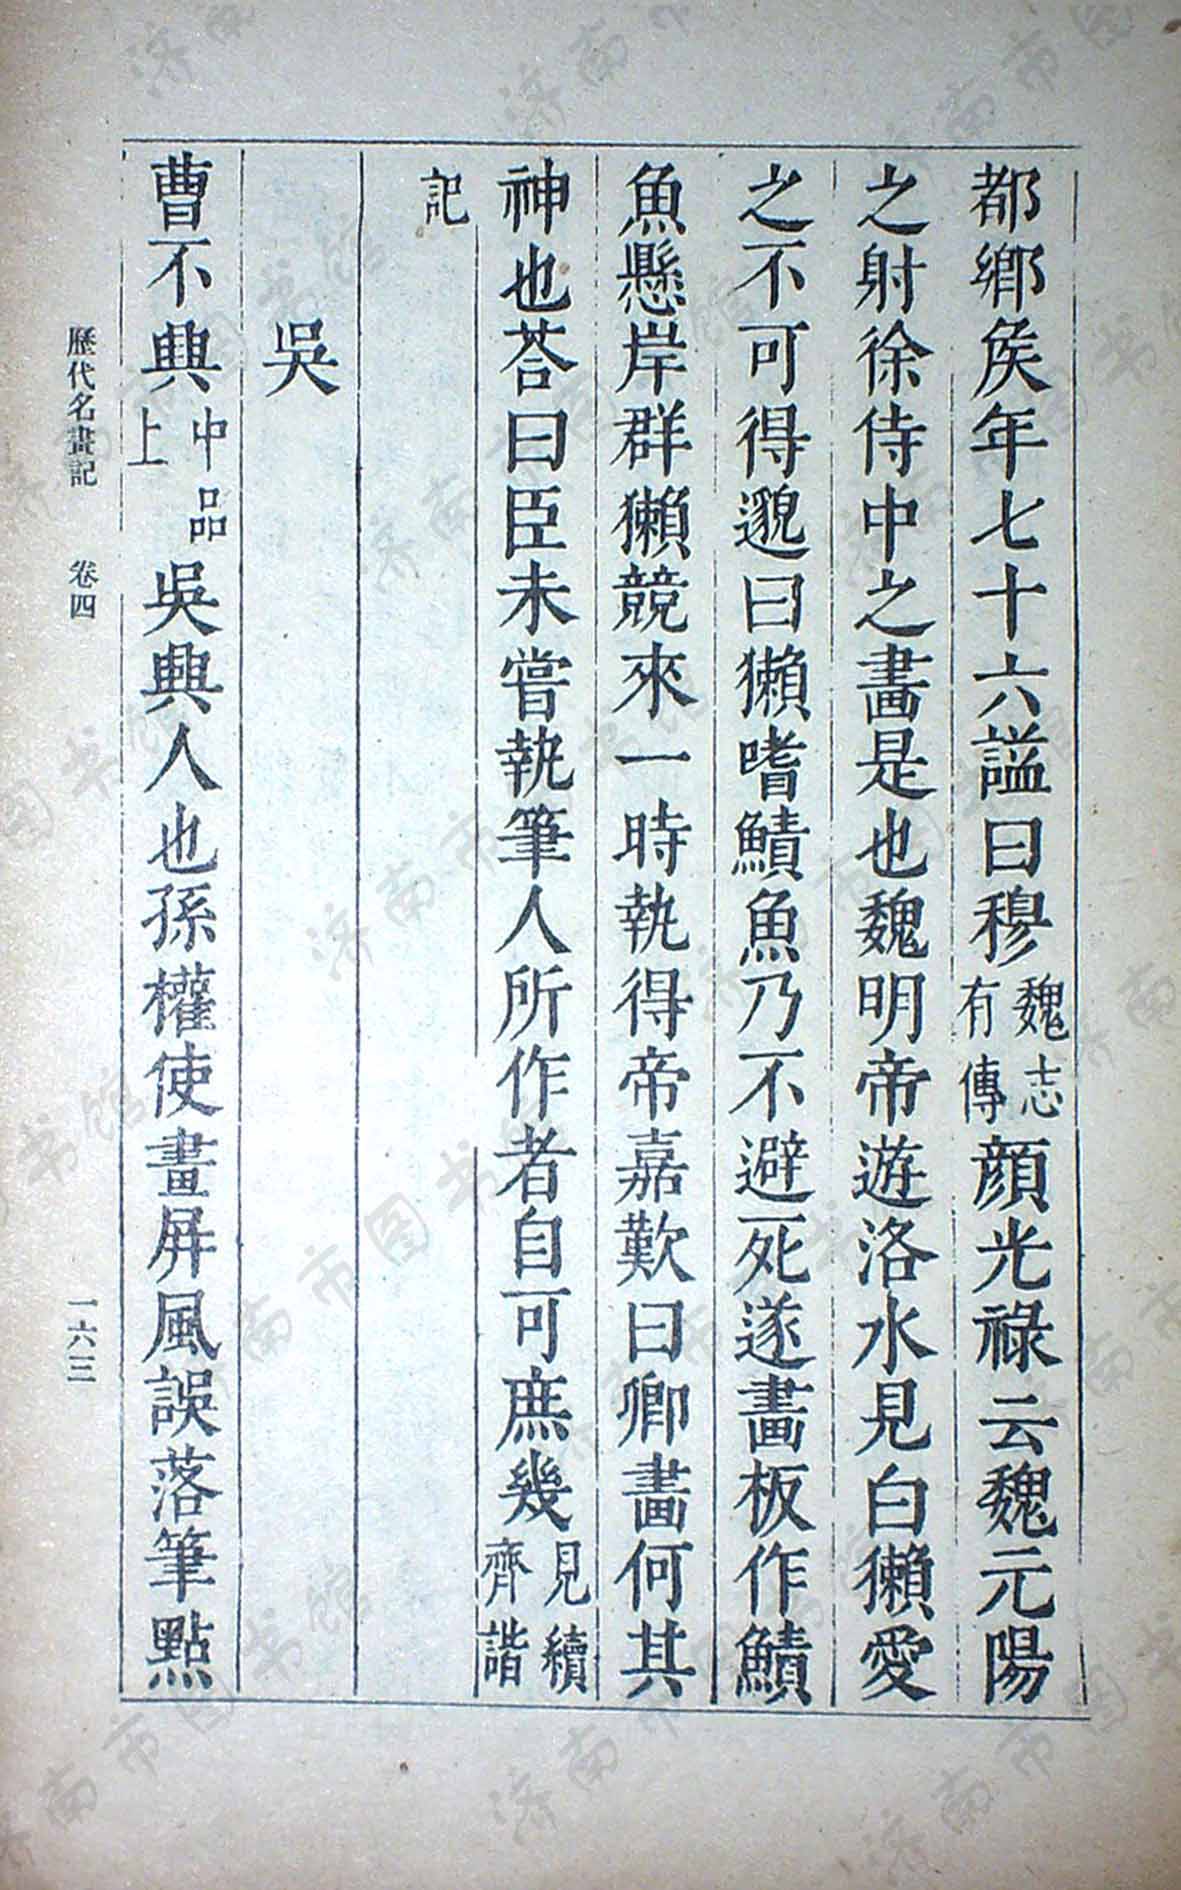 都鄉矦年七十六謚曰穆魏志有傳顔光祿云魏元陽
之射徐侍中之畫是也魏明帝遊洛水見白獺愛
之不可得邈曰獺嗜鯖魚乃不避死遂畫板作鯖
魚懸岸群獺競來一時執得帝嘉歎曰卿畫何其
神也荅曰臣未嘗執筆人所作者自可庶幾見續齊諧
記
吳
曹不興中品上吳興人也孫權使畫屏風誤落筆點
歷代名畫記 卷四 一六三
济南市图书馆